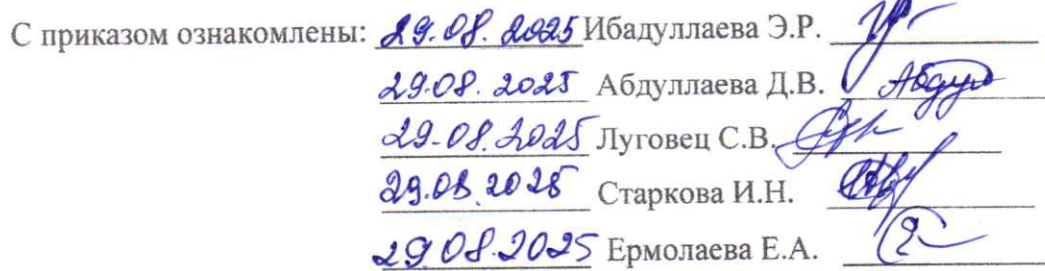 С приказом ознакомлены: 29.08.2025 Ибадуллаева Э.Р.
29.08.2025 Абдуллаева Д.В.
29.08.2025 Луговец С.В.
29.08.2025 Старкова И.Н.
29.08.2025 Ермолаева Е.А.